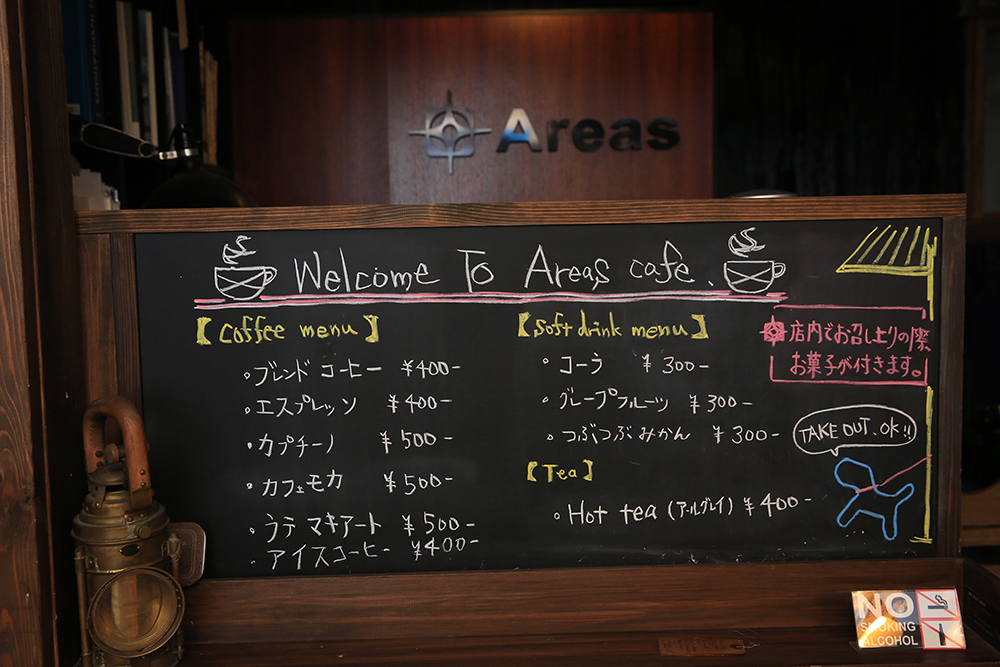 Areas
Welcome To Areas cafe.
【Coffee menu】
・ブレンド コーヒー ¥400-
・エスプレッソ ¥400-
・カプチーノ ¥500-
・カフェモカ ¥500-
・ラテ マキアート ¥500-
・アイスコーヒー ¥400-
【Soft drink menu】
・コーラ ¥300-
・グレープフルーツ ¥300-
・つぶつぶみかん ¥300-
【Tea】
・Hot tea (アールグレイ) ¥400-
店内でお召し上りの際
お菓子が付きます。
TAKE OUT. OK!!
NO
SMOKING
ALCOHOL